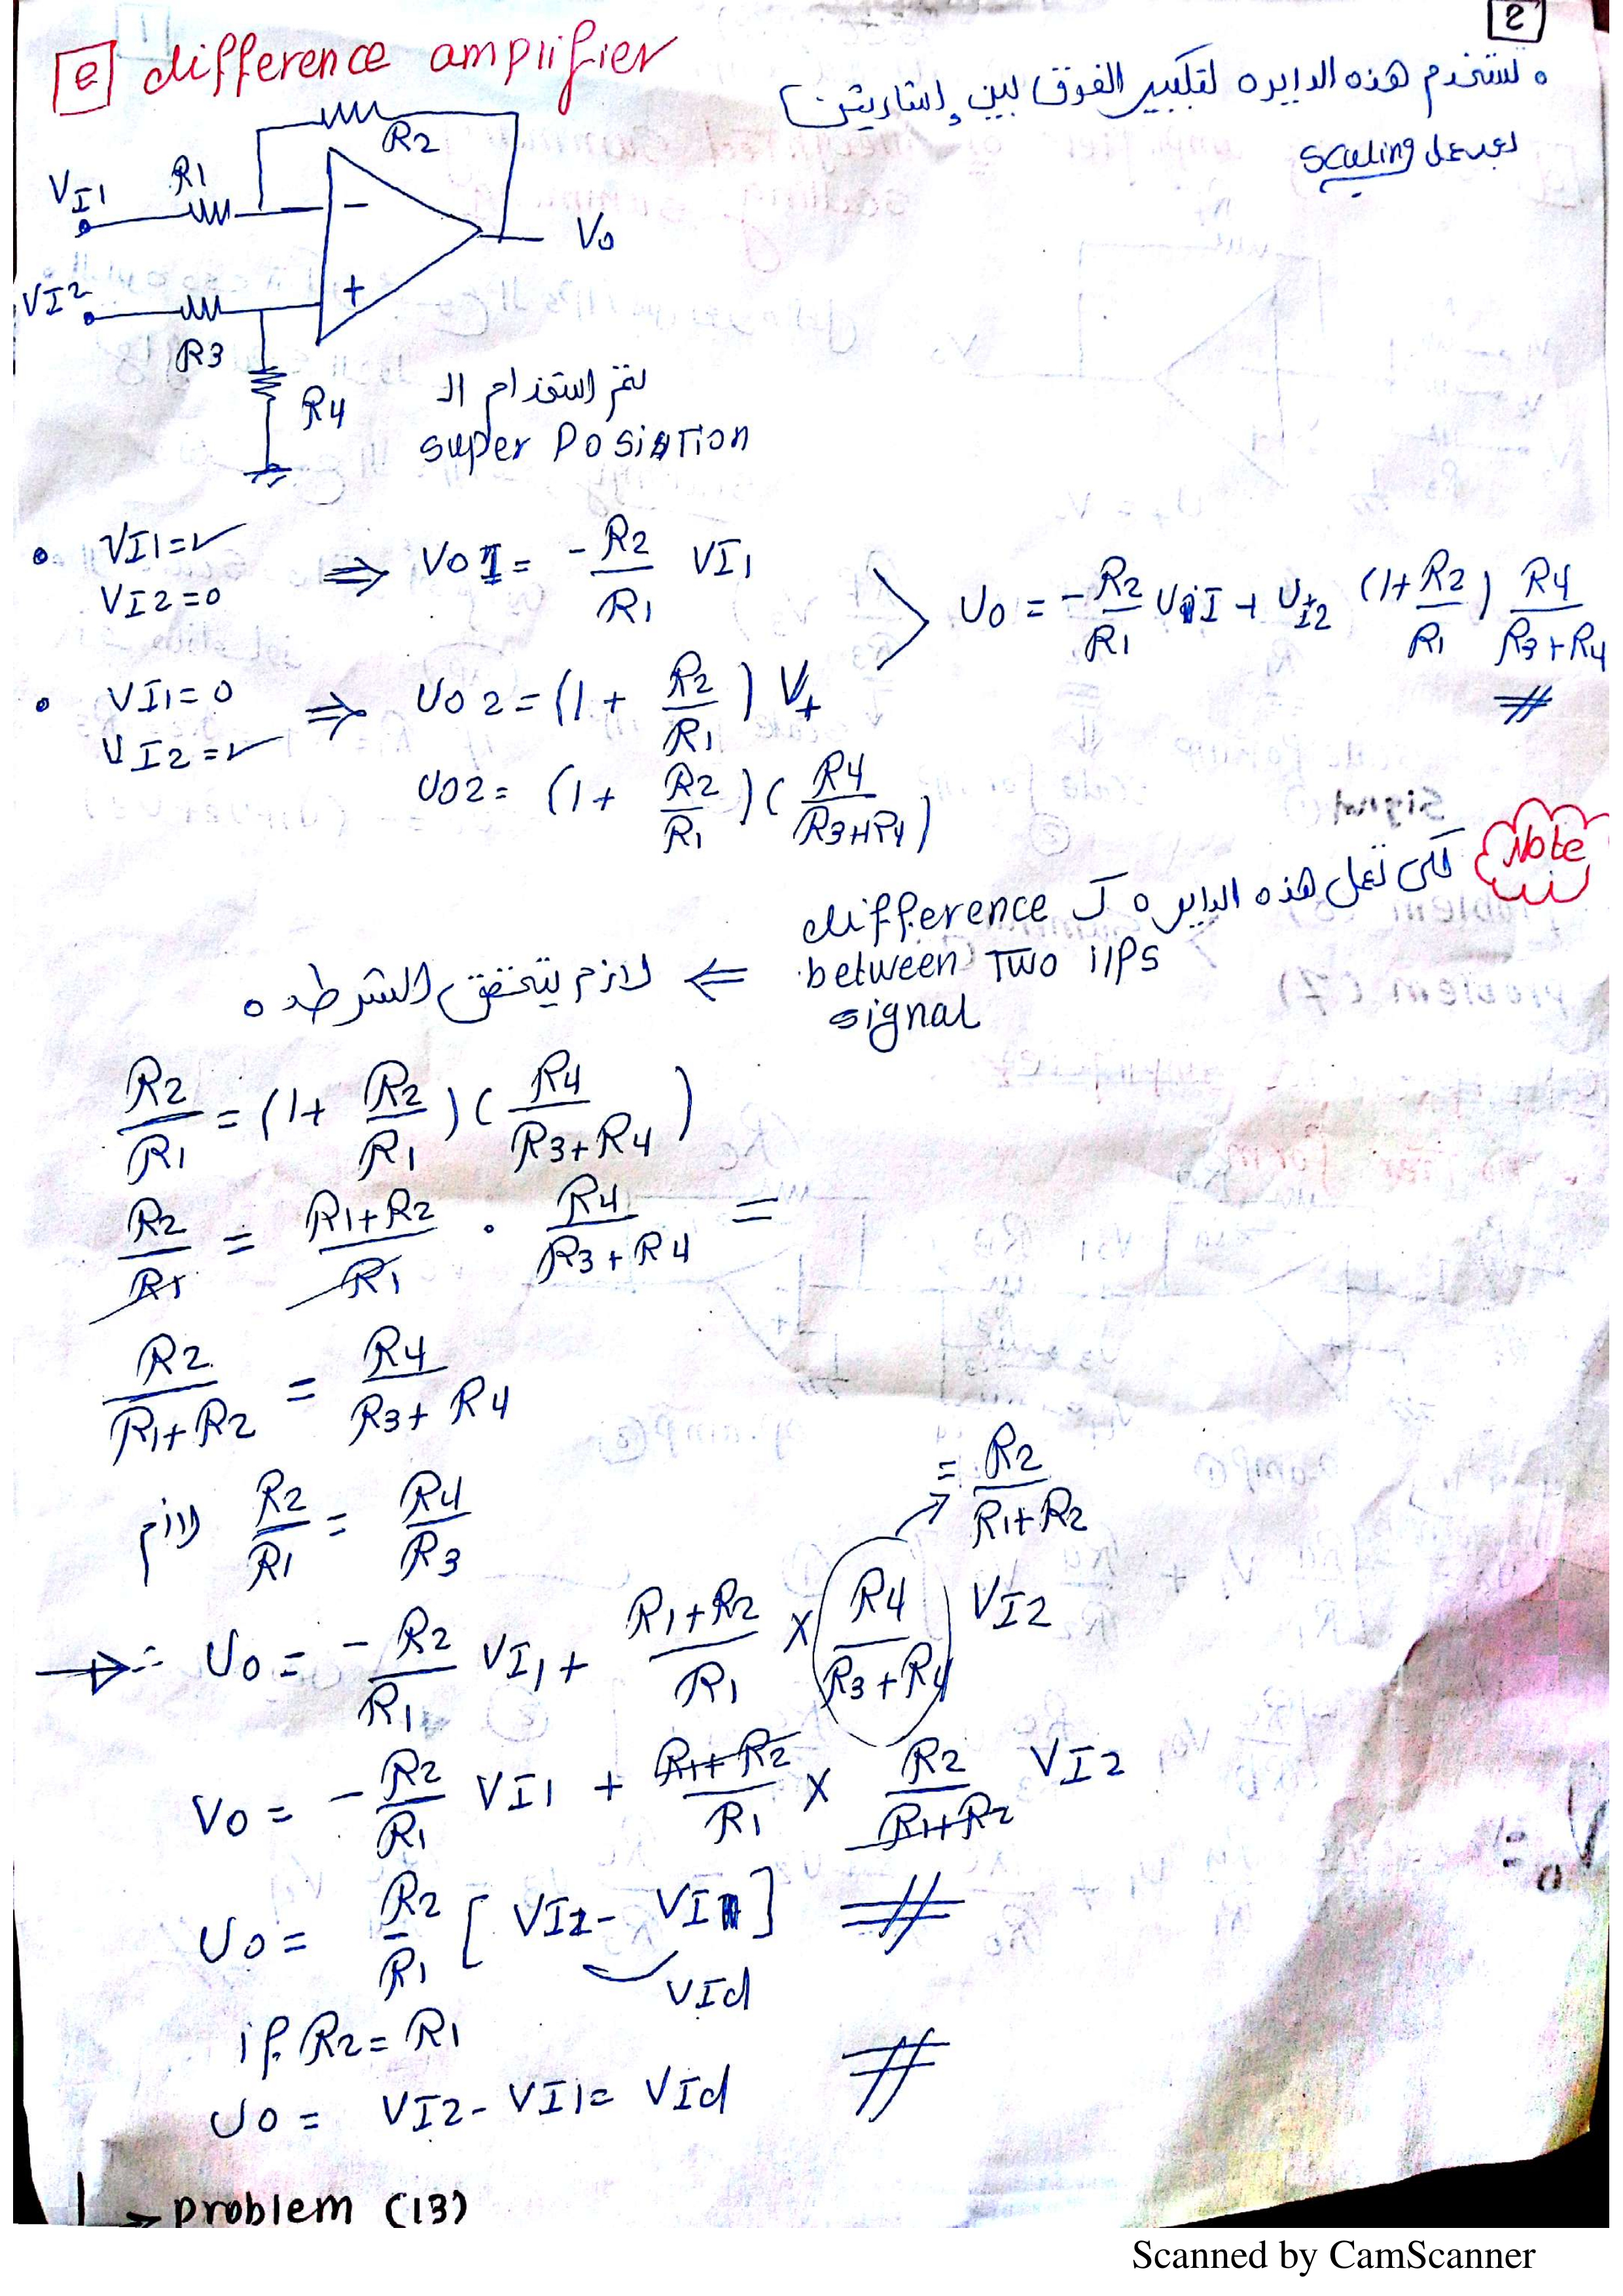 2
e difference amplifier
• تستخدم هذه الدايره لتكبير الفرق بين إشاريتن
بعمل scaling
R2
R1
VI1
-
Vo
VI2
+
R3
R4
يتم استخدام ال
super Position
• VI1=✓
VI2=0
⇒ VO1 = -R2/R1 VI1
Uo = -R2/R1 UI1 + UI2 (1+R2/R1) R4/(R3+R4)
• VI1=0
VI2=✓
⇒ UO2=(1+ R2/R1) V+
UO2= (1+ R2/R1)(R4/(R3+R4))
Note
لكى تعمل هذه الدايره ك difference
between Two i/Ps
signal
⇐ لازم يتحقق الشرط ده
R2/R1 = (1+ R2/R1)(R4/(R3+R4))
R2/R1 = (R1+R2)/R1 . R4/(R3+R4) =
R2/(R1+R2) = R4/(R3+R4)
= R2/(R1+R2)
لازم R2/R1 = R4/R3
→ ∴ Uo = -R2/R1 VI1 + (R1+R2)/R1 × R4/(R3+R4) VI2
Vo = -R2/R1 VI1 + (R1+R2)/R1 × R2/(R1+R2) VI2
Uo = R2/R1 [VI2 - VI1]
VId
if R2=R1
Uo = VI2 - VI1 = VId
→ problem (13)
Scanned by CamScanner